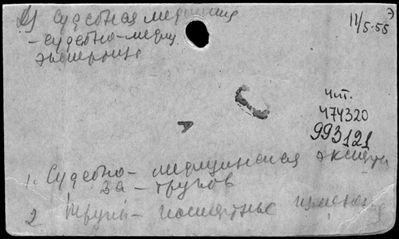 Судебная медицина
11/5-55
Э
- судебно-медиц
экспертиза
чит.
474320
993121
1. Судебно - медицинская экспер
за - трупов
2 Трупы - посмертные изменен